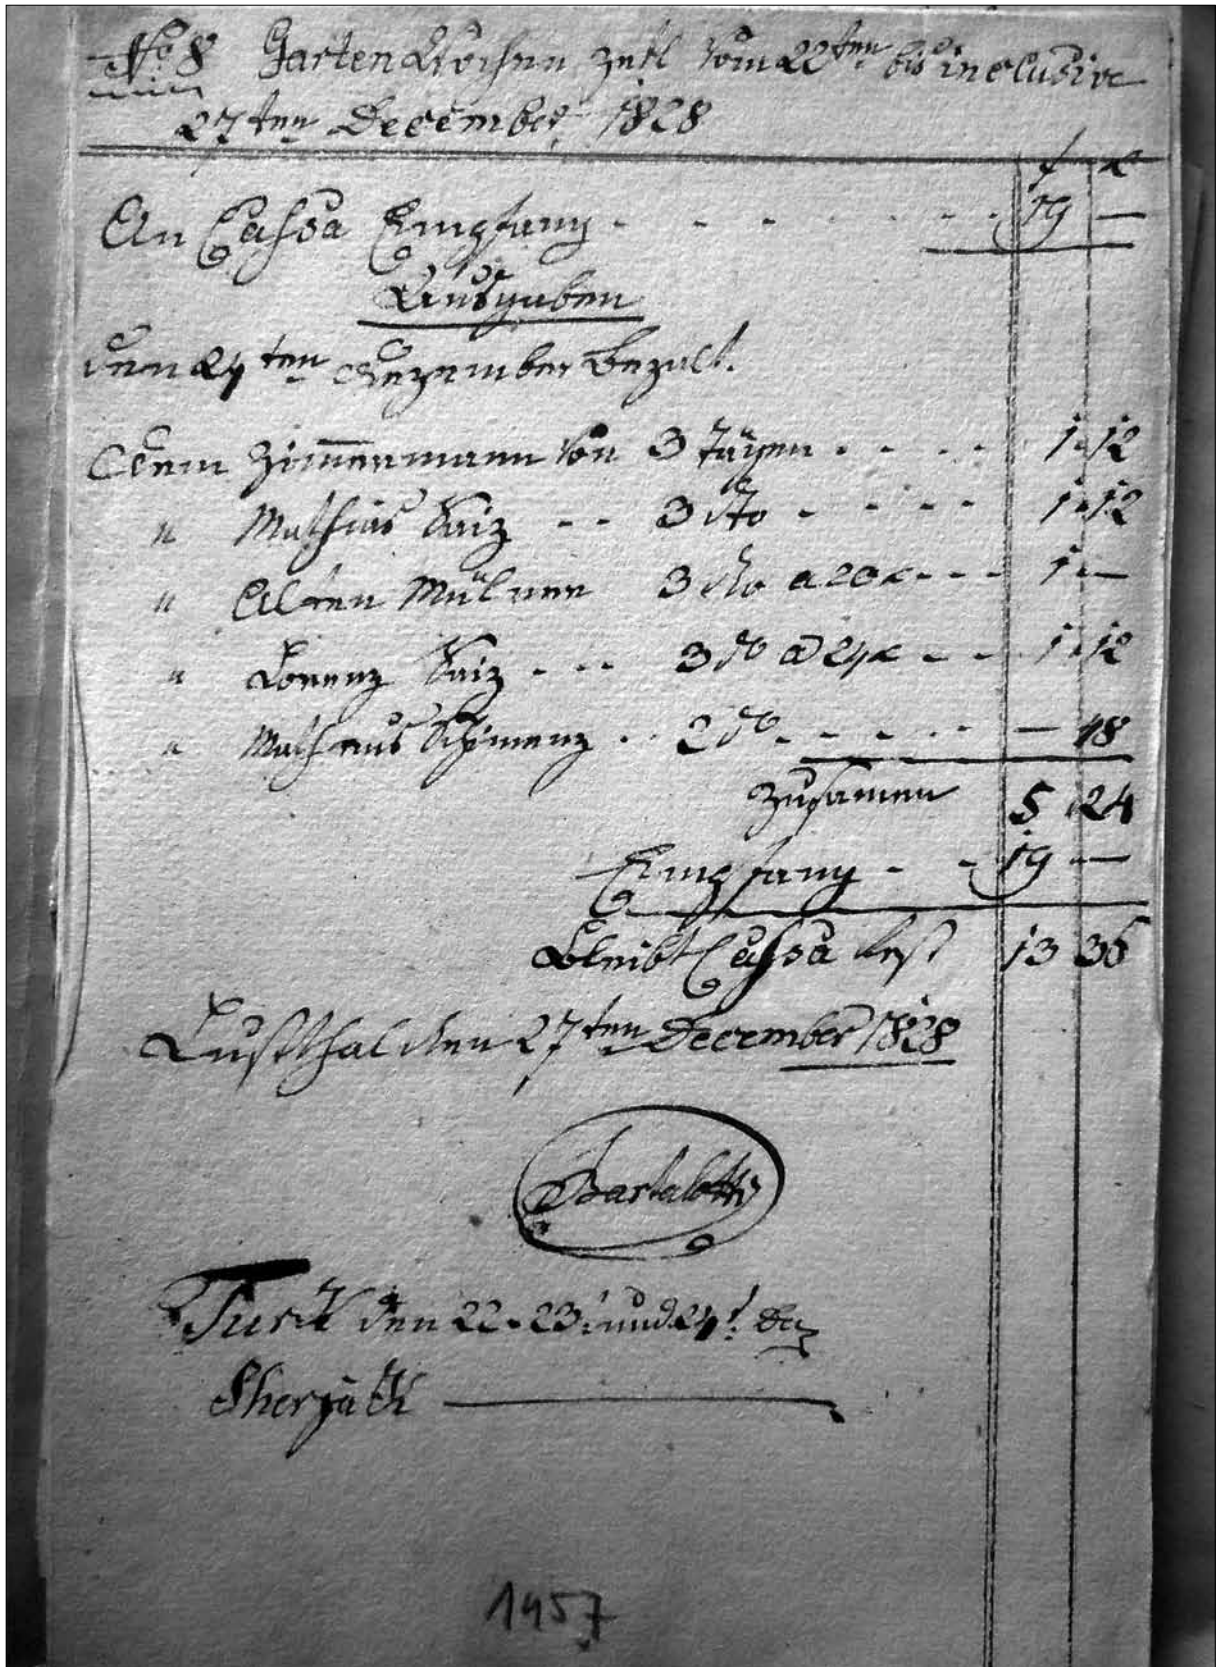 No 8 Garten Wochen Zetl vom 22ten bis inclusive
27ten December 1828
f x
An Cassa Empfang - - - - - - 19 —
Ausgaben
den 24ten Dezember bezalt.
Dem Zimmermann von 3 Tägen - - - - 1 12
" Mathias - - 3 dto - - - - 1 12
" Alten Mülner 3 dto a 20 x - - - 1 —
" Lorenz - - - 3 do a 24 x - - - 1 12
" 2 do - - - - — 48
Zusamen 5 24
Empfang - - 19 —
Bleibt Cassa Rest 13 36
Lustthal den 27ten December 1828
Bartalotti
Turk den 22. 23. und 24t. Dez
1457